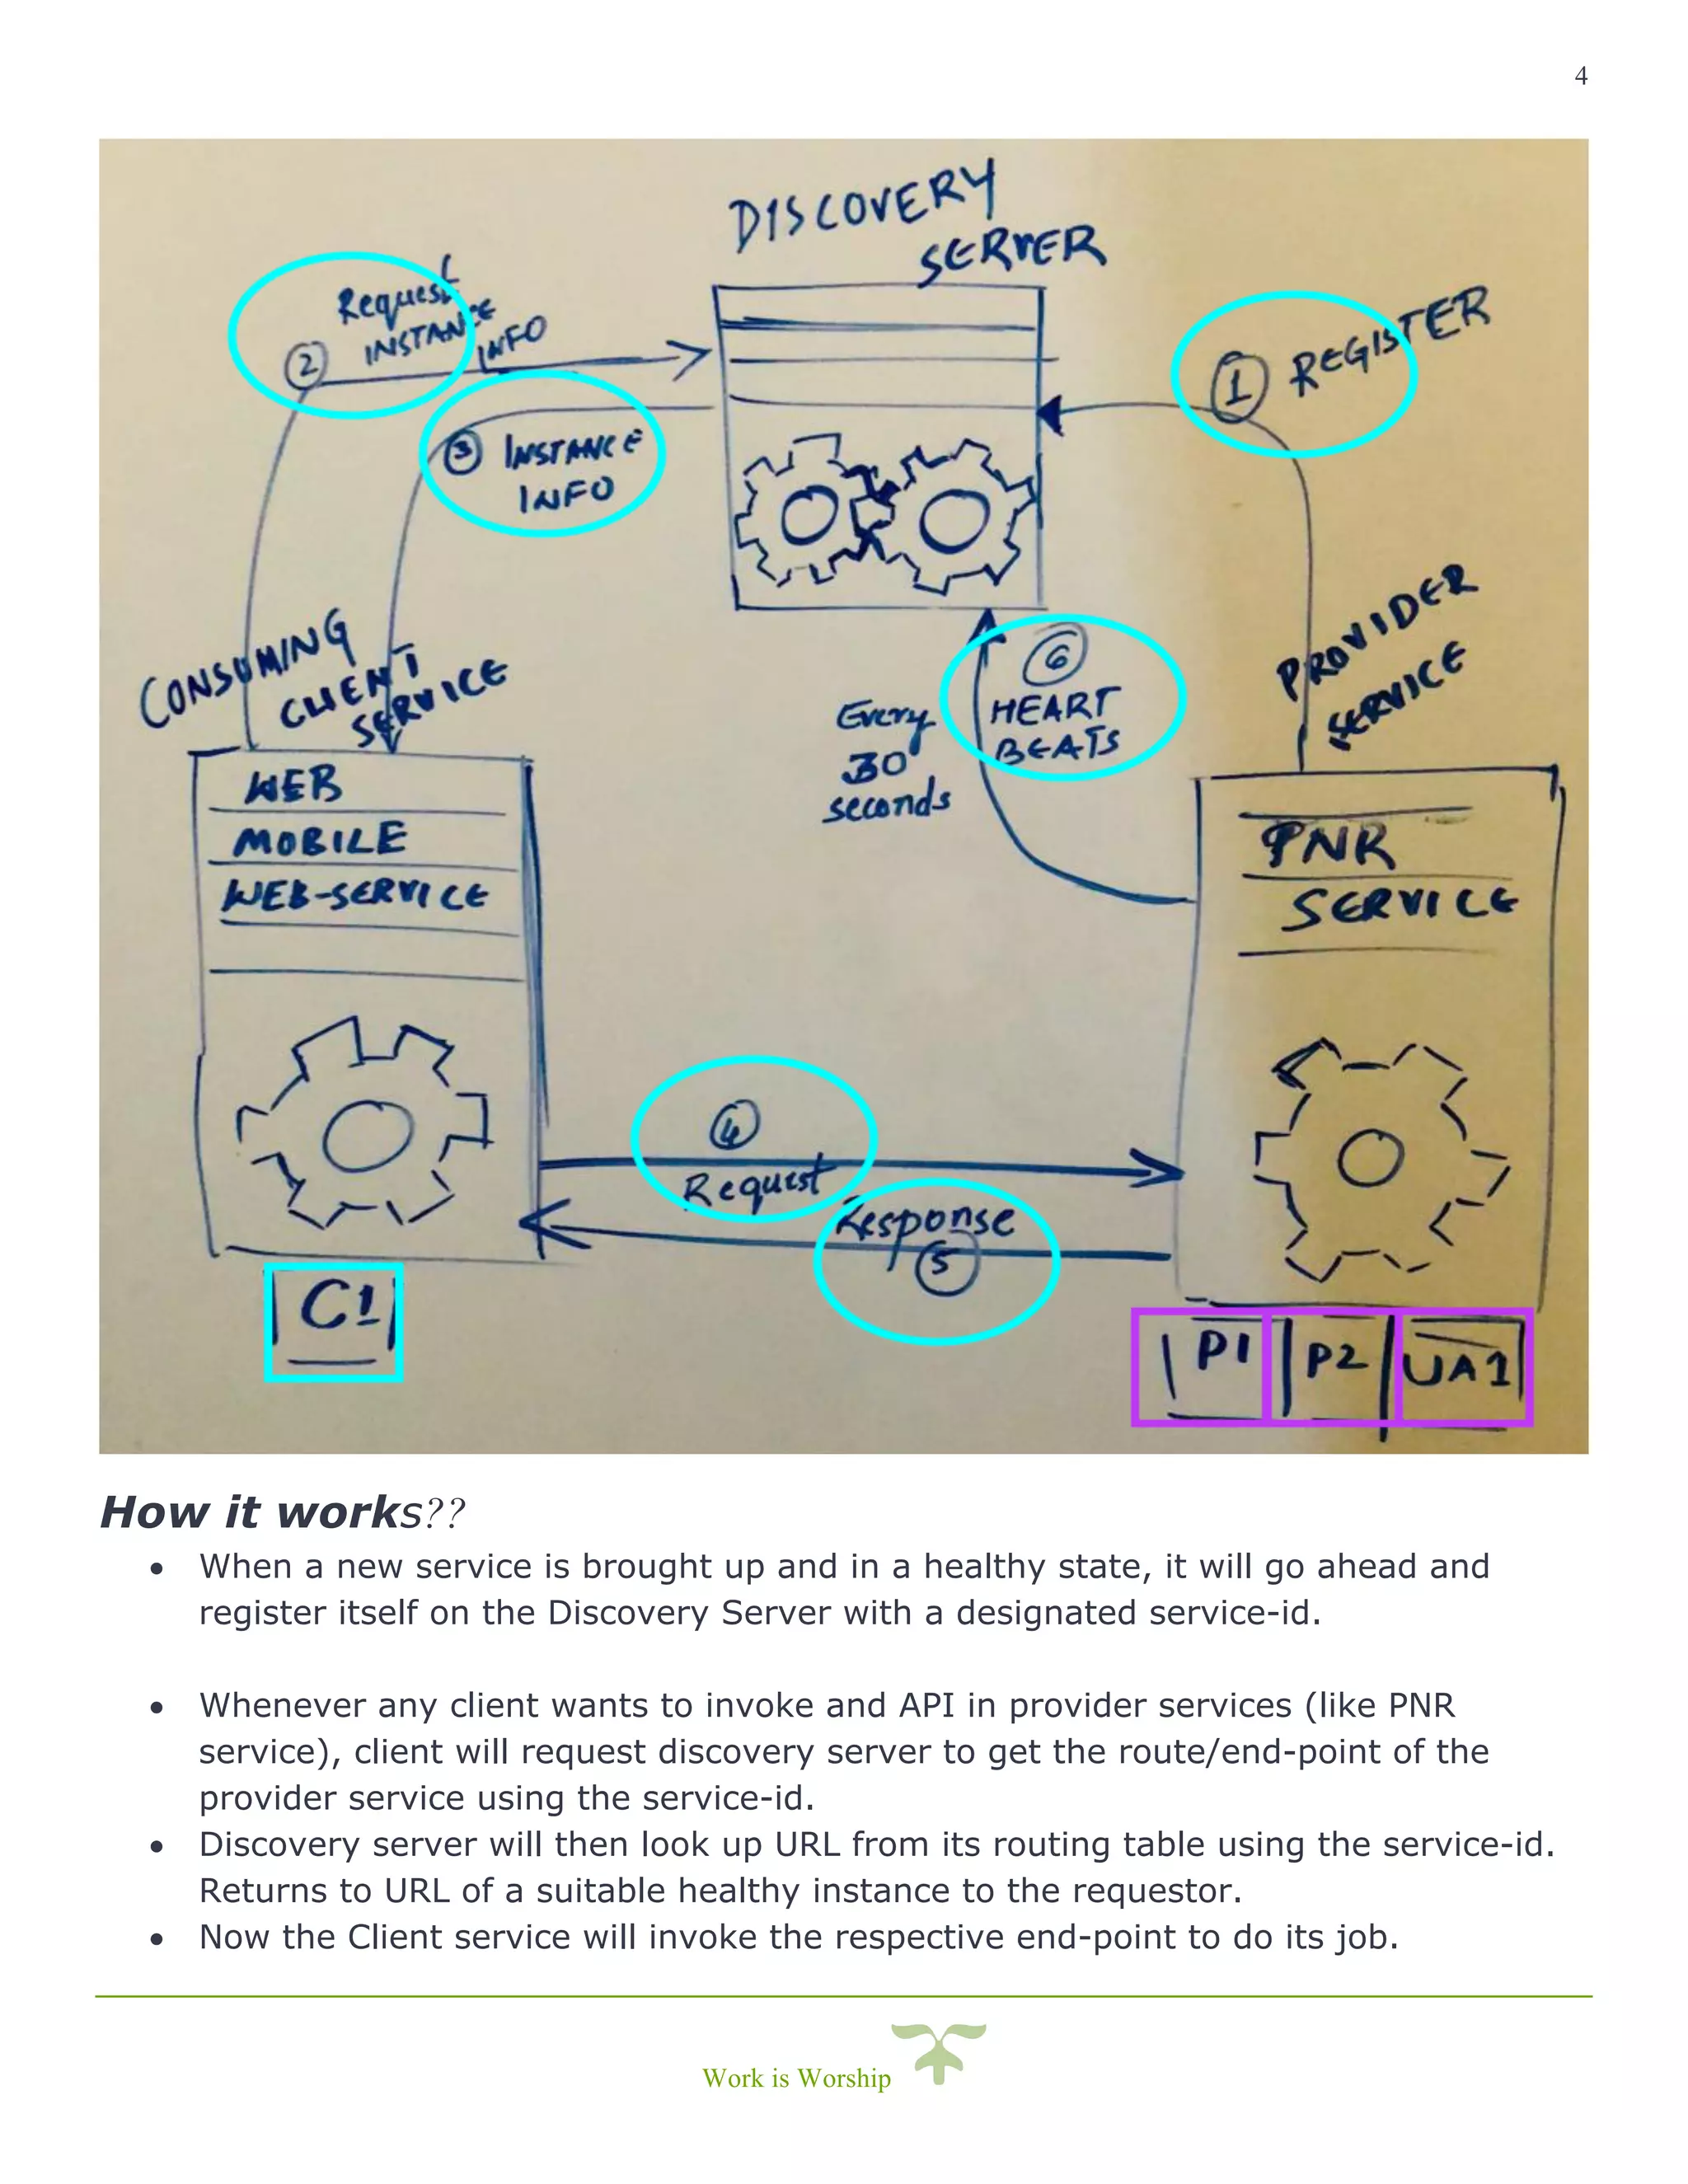 4
DISCOVERY
SERVER
Request
INSTANCE
INFO
2
1 REGISTER
3 INSTANCE
INFO
CONSUMING
CLIENT
SERVICE
6
HEART
BEATS
Every
30
seconds
PROVIDER
SERVICE
WEB
MOBILE
WEB-SERVICE
PNR
SERVICE
4
Request
Response
5
C1
P1 P2 UA1
How it works??
• When a new service is brought up and in a healthy state, it will go ahead and
register itself on the Discovery Server with a designated service-id.
• Whenever any client wants to invoke and API in provider services (like PNR
service), client will request discovery server to get the route/end-point of the
provider service using the service-id.
• Discovery server will then look up URL from its routing table using the service-id.
Returns to URL of a suitable healthy instance to the requestor.
• Now the Client service will invoke the respective end-point to do its job.
Work is Worship